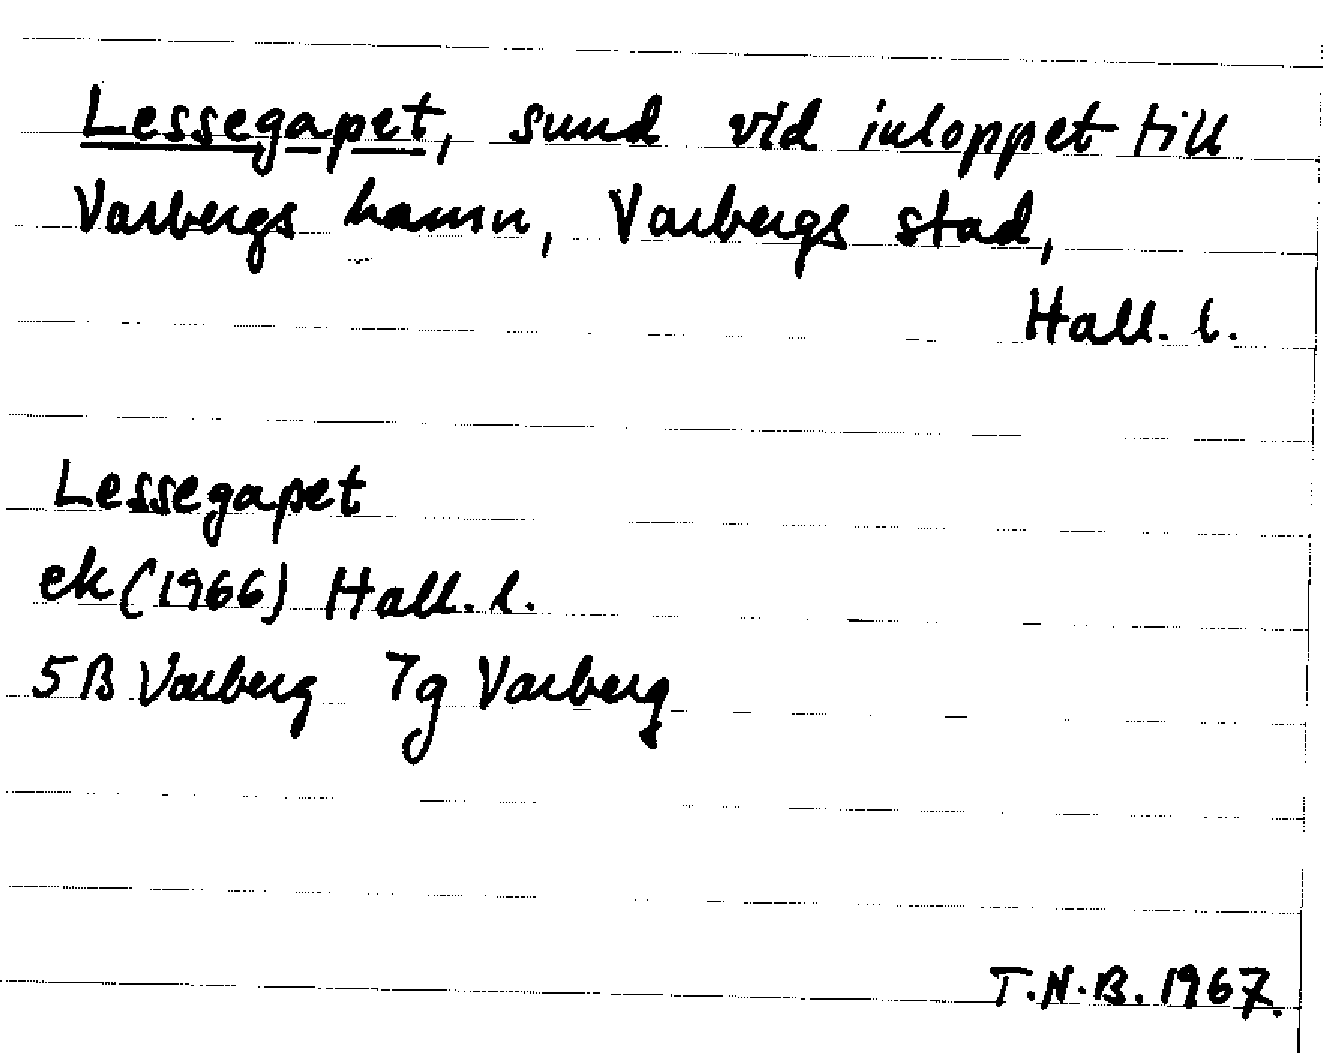 Lessegapet, sund vid inloppet till
Varbergs hamn, Varbergs stad,
Hall. l.
Lessegapet
ek (1966) Hall. l.
5B Varberg 7g Varberg
T.N.B. 1967.